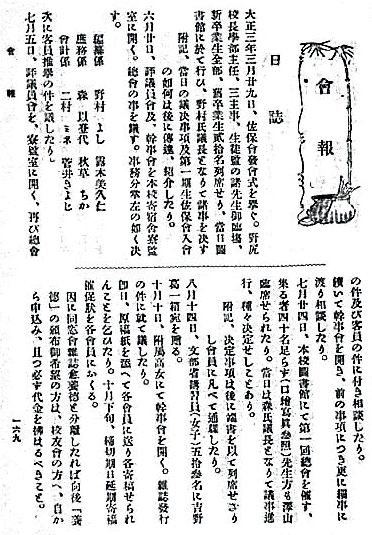 會報
日誌
大正三年三月廿九日、佐保會發會式を擧ぐ。野尻
校長學部主任、三主事、生徒監の諸先生御臨塲、
新卒業生全部、舊卒業生貳拾名列席せり、當日圖
書館に於て行ひ、野村氏議長となりて諸事を決す
附記、當日の議決事項及第一期生佐保會入會
の如何は後に傳達、紹介したり。
六月廿日、評議員會及、幹事會を本校寄宿舍寮監
室に開く。總會の事を議す。事務分掌左の如く決
す。
編纂係 野村 よし 露木美久仁
庶務係 森 以巻代 秋草 ちか
會計係 二村 ミネ 菅井きよじ
次に客員推擧の件を議したり。
七月五日、評議員會を、寮監室に開く、再び總會
の件及び客員の件に付き相談したり。
續いて幹事會を開き、前の事項につき更に幹事に
渡り相談したり。
七月廿四日、本校圖書館にて第一回總會を催す、
集る者四十名足らず(口繪寫眞參照)先生方も澤山
臨席せられたり。當日は森氏議長となりて議事進
行、種々決定せしことあり。
附記、決定事項は後に端書を以て列席せざり
し會員に凡べて通牒したり。
八月十四日、文部省講習員(女子)五拾參名に吉野
葛一箱宛を贈る。
十月十日、附屬高女にて幹事會を開く。雜誌發行
の件に就て議したり。
卽日、原稿紙を添へて各會員に送り各寄稿せられ
んことを乞ひたり。十月下旬、締切期日延期寄稿
催促狀を各會員におくる。
因に同窓會雜誌惢義德と分離したれば向後「义
德」の頒布御希望の方は、校友會の方へ、自か
ら申込み、且つ必す代金を拂はるべきこと。
會報
一六九